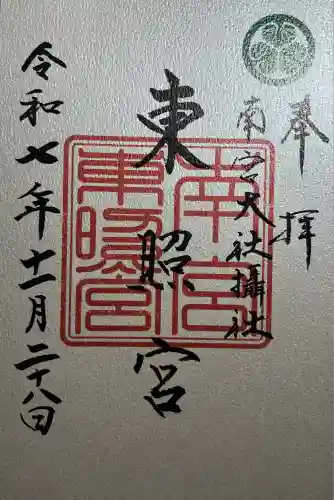 奉拝
南宮大社攝社
東照宮
令和七年十一月二十八日
南宮
東照宮